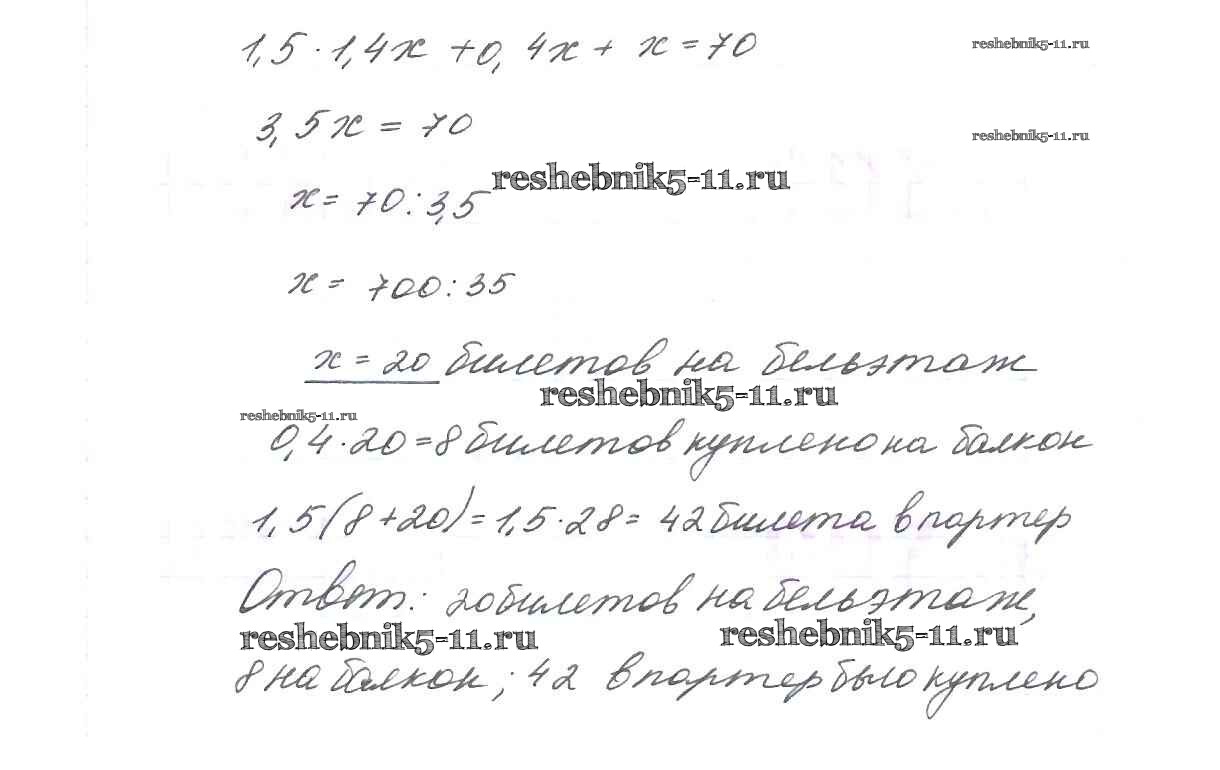 1,5 · 1,4x + 0,4x + x = 70
reshebnik5-11.ru
3,5x = 70
reshebnik5-11.ru
reshebnik5-11.ru
x = 70 : 3,5
x = 700 : 35
x = 20 билетов на бельэтаж
reshebnik5-11.ru
reshebnik5-11.ru
0,4 · 20 = 8 билетов куплено на балкон
1,5(8+20) = 1,5 · 28 = 42 билета в партер
Ответ: 20 билетов на бельэтаж,
reshebnik5-11.ru
reshebnik5-11.ru
8 на балкон; 42 в партер было куплено